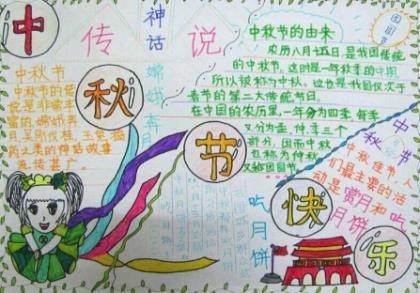 中秋节快乐
神话
传说
团圆
中秋节的由来
农历八月十五日,是我国传统
的中秋节。这时是一年秋季的中期
所以被称为中秋。这也是我国仅次于
春节的第二大传统节日。
在中国的农历里,一年分为四季,每季
又分为孟、仲、季三个
部分,因而中秋
也称为仲秋
又称团圆节
中秋节
中秋节的传
说是非常丰
富的,嫦娥奔
月,吴刚伐桂,玉兔捣
药之类的神话故事
流传甚广。
嫦娥奔月
中秋
中秋佳节,人
们最主要的活
动是赏月和吃
月饼
吃月饼
吃月饼